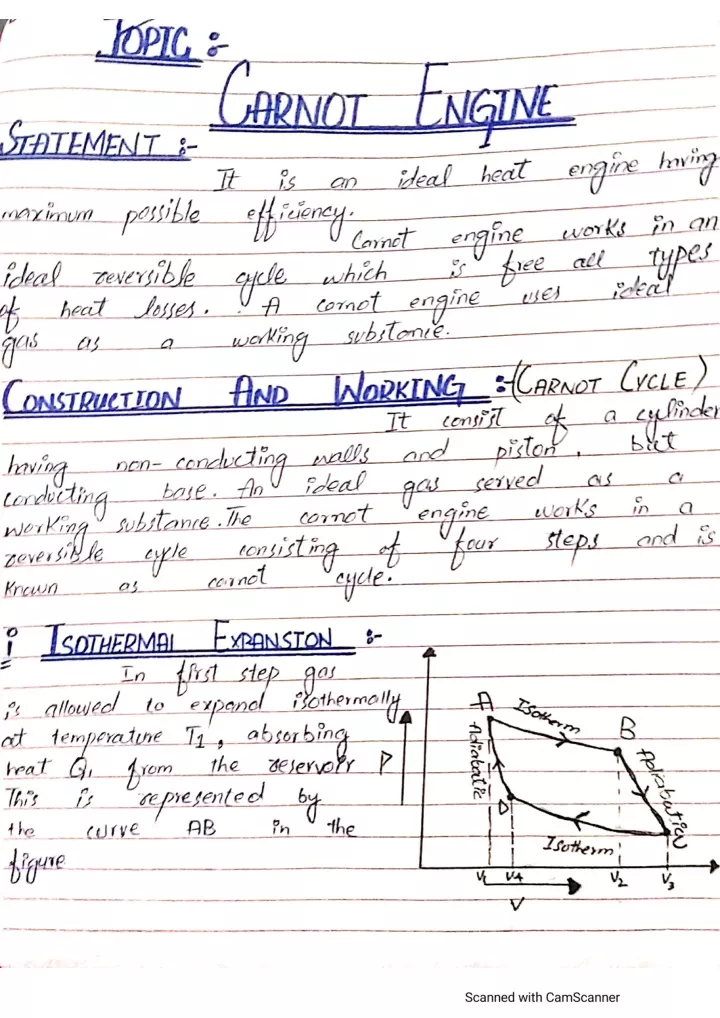 TOPIC :-
CARNOT ENGINE
STATEMENT :-
It is an ideal heat engine having
maximum possible efficiency.
Carnot engine works in an
ideal reversible cycle which is free all types
of heat losses. A cornot engine uses ideal
gas as a working substance.
CONSTRUCTION AND WORKING :-(CARNOT CYCLE)
It consist of a cylinder
having non-conducting walls and piston, but
conducting base. An ideal gas served as a
working substance. The cornot engine works in a
reversible cycle consisting of four steps and is
Known as carnot cycle.
i ISOTHERMAL EXPANSION :-
In first step gas
is allowed to expand isothermally
at temperature T1, absorbing
heat Q1 from the reservoir
This is represented by
the curve AB in the
figure
P
A
Isotherm
B
Adiabatic
Adiabatic
D
C
Isotherm
V1 V4 V2 V3
V
Scanned with CamScanner